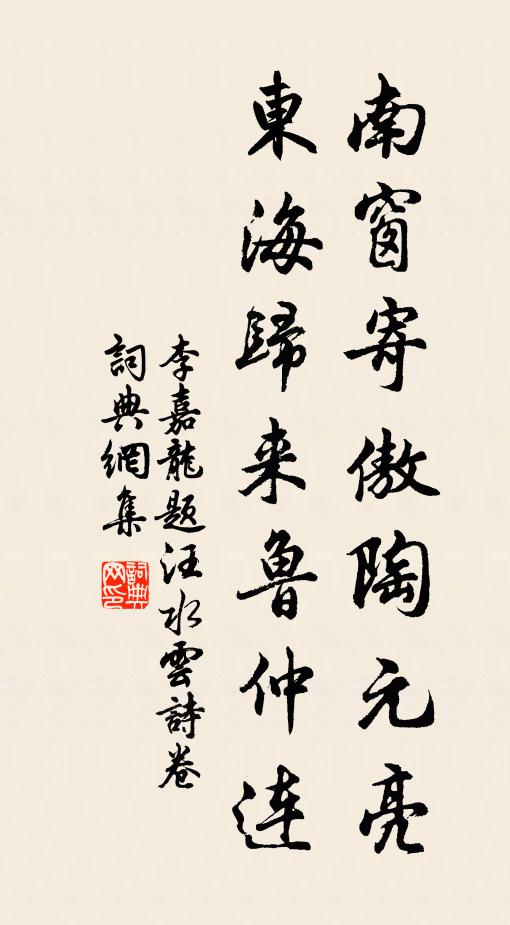 南窗寄傲陶元亮
東海歸来魯仲連
李嘉龍题汪水雲詩卷
詞典網集
詞典网印